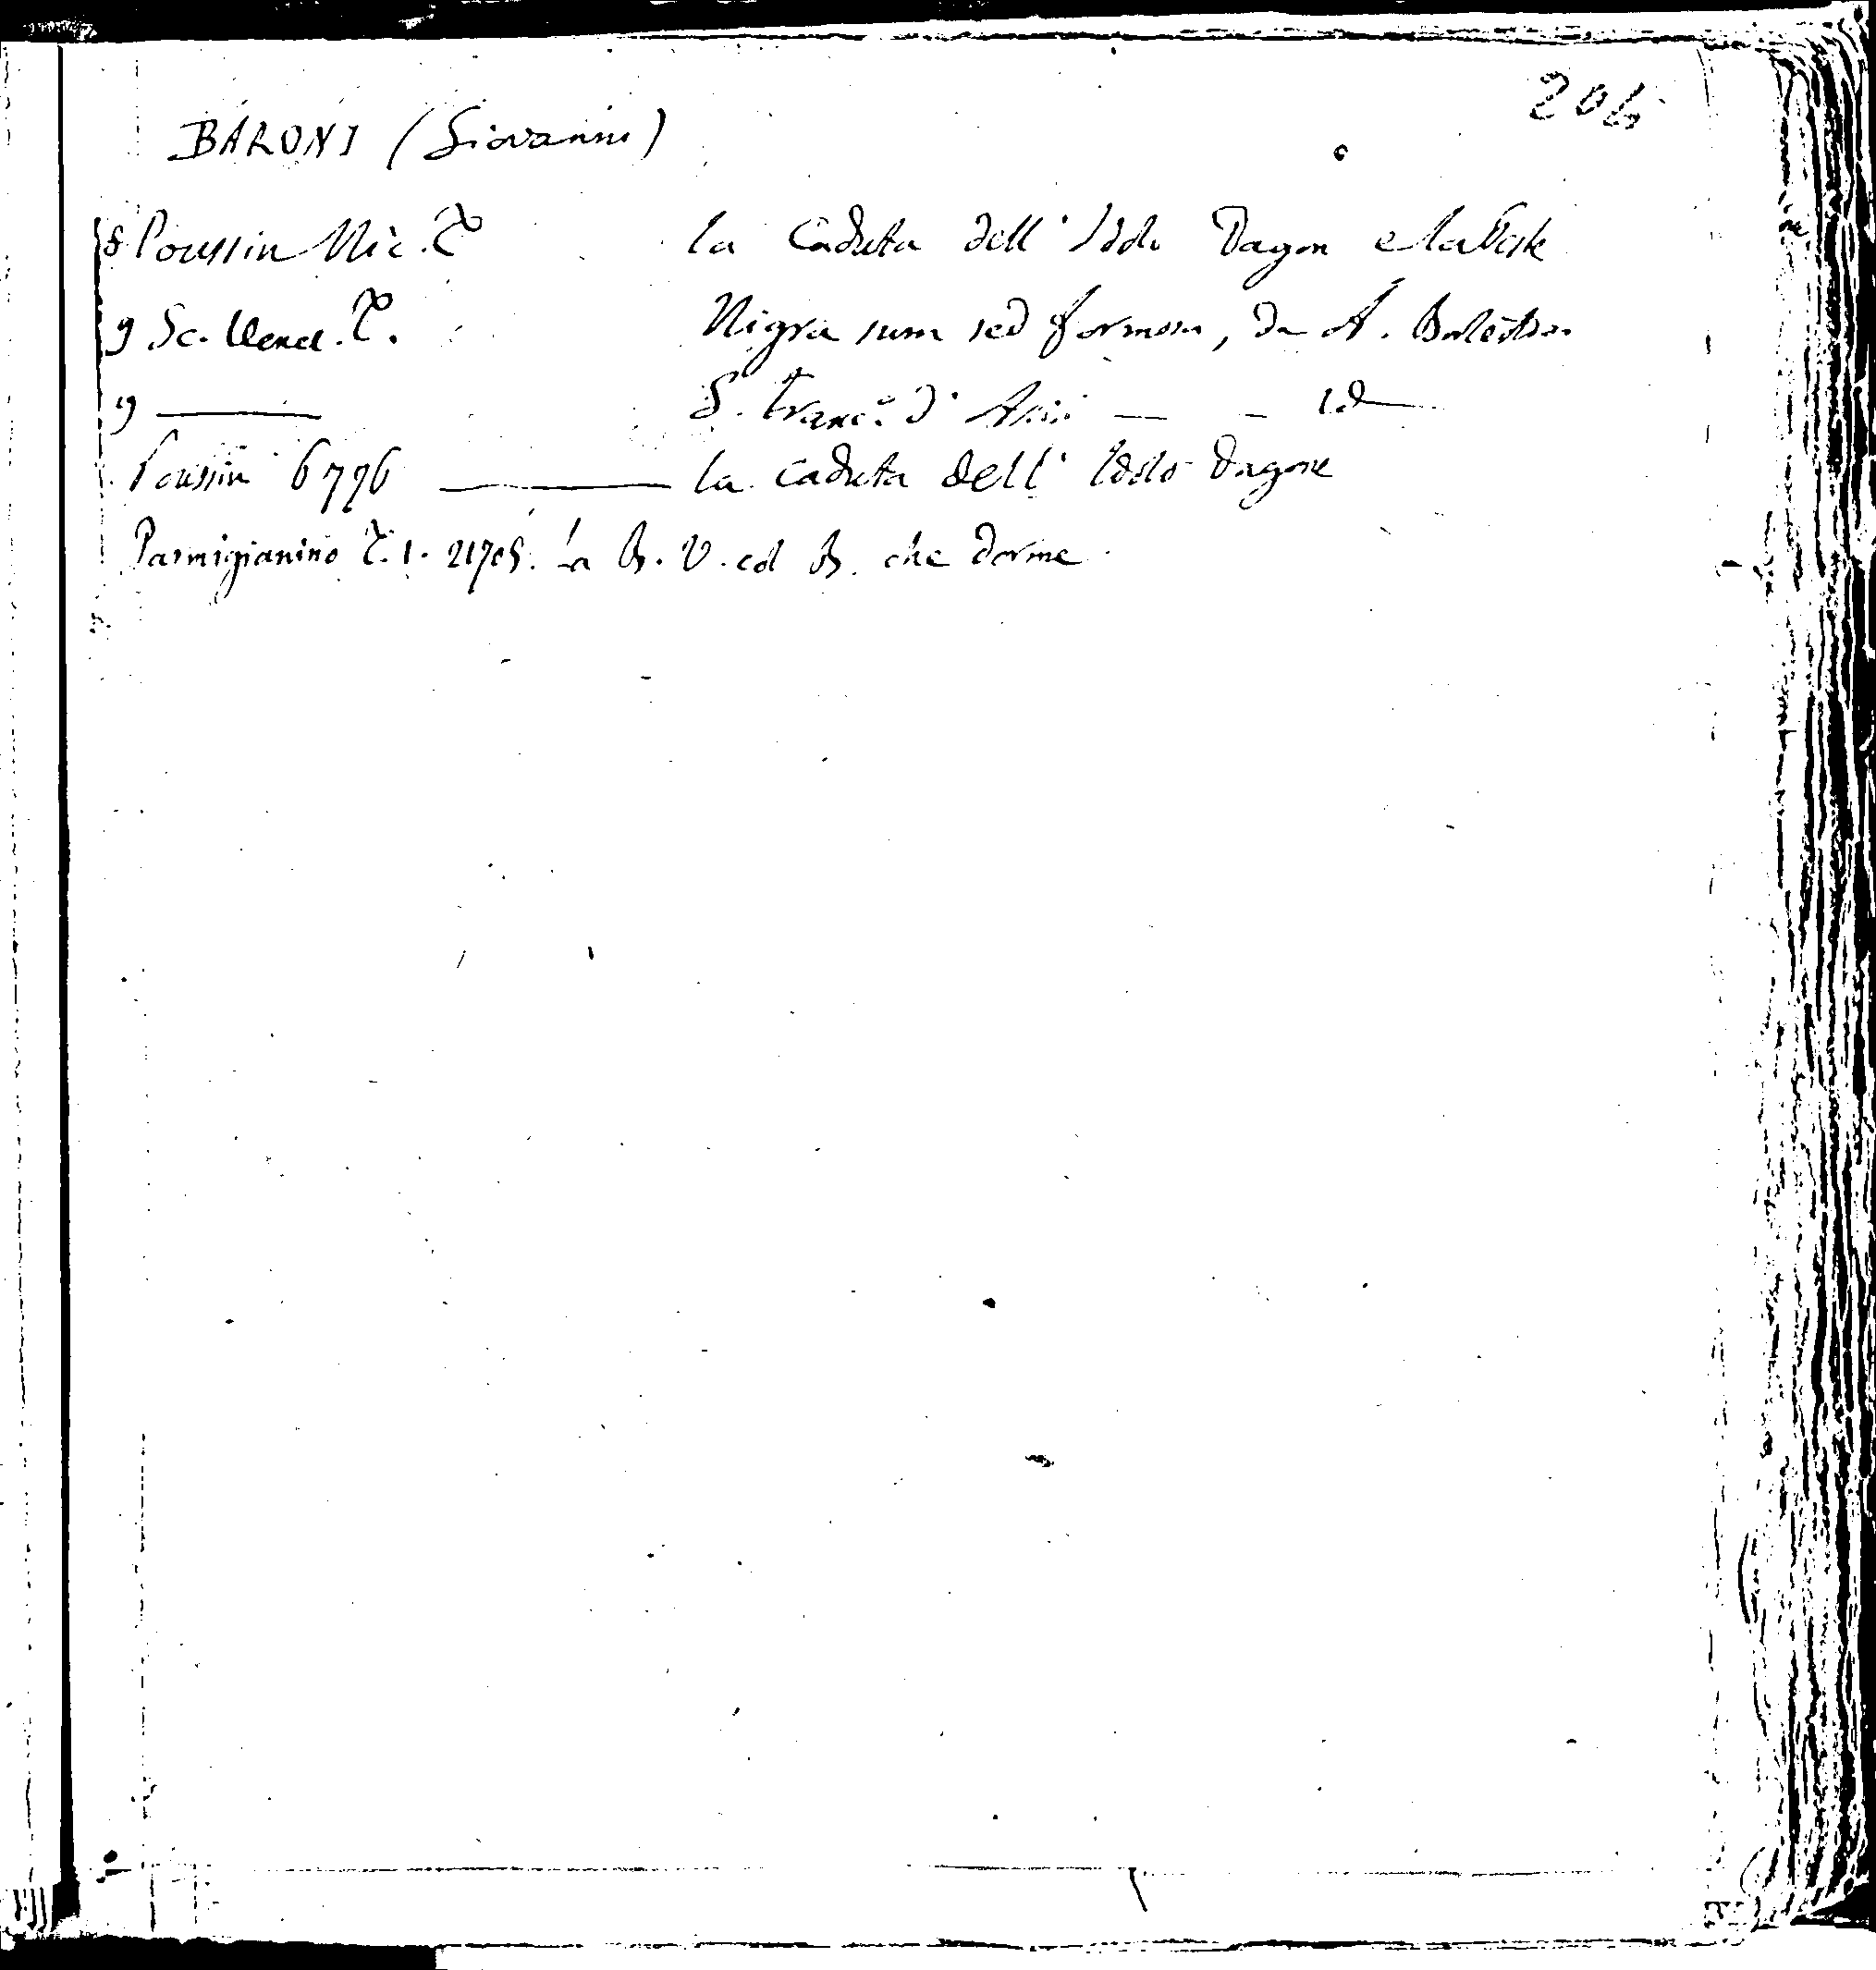 206
BARONI (Giovanni)
8 Poussin Nic. T. la Caduta dell' Idolo Dagon e la Peste
9 Sc. Venez. T. Nigra sum sed formosa, da A. Balestra
9 ——— S. Franc.o d' Assisi — — id
Poussin 6796 ——— la Caduta dell' Idolo Dagone
Parmigianino T. 1. 21705. La B. V. col B. che dorme